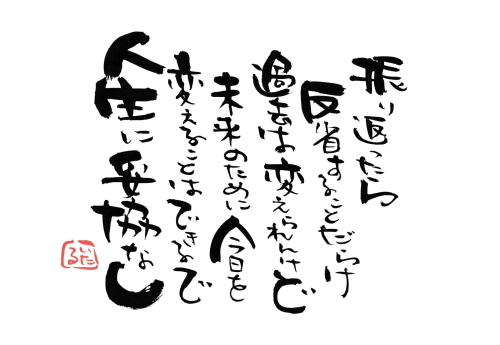 振り返ったら
反省することだらけ
過去は変えられんけど
未来のために今日を
変えることはできるで
人生に妥協なし